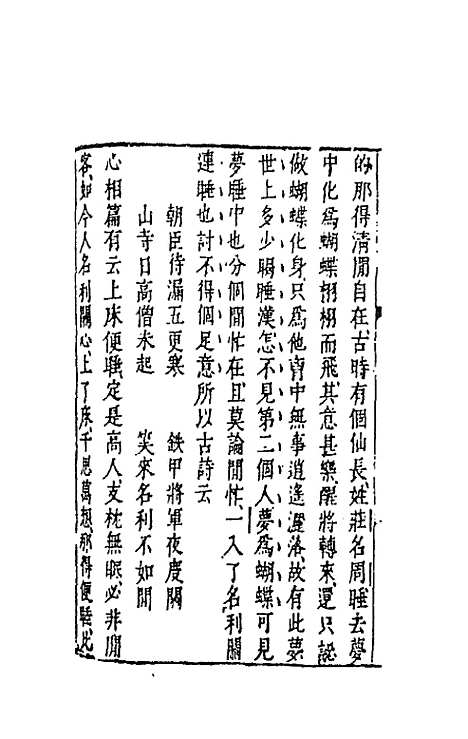 的那得清閒自在古時有個仙長姓莊名周睡去夢
中化爲蝴蝶栩栩而飛其意甚樂醒將轉來還只認
做蝴蝶化身只爲他胷中無事逍遙灑落故有此夢
世上多少瞌睡漢怎不見第二個人夢爲蝴蝶可見
夢睡中也分個閒忙在且莫論閒忙一入了名利關
連睡也討不得個足意所以古詩云
朝臣待漏五更寒　鉄甲將軍夜度關
山寺日高僧未起　筭來名利不如閒
心相篇有云上床便睡定是高人支枕無眠必非閒
客如今人名利關心上了床千思萬想那得便睡比